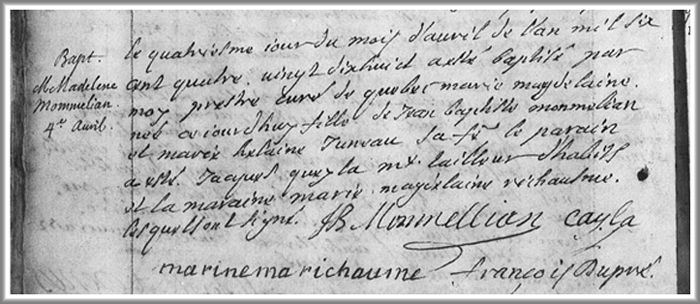 Bapt.
M. Madelene
Mommelian.
4.e Avril.
le quatriesme iour du mois d'auril de l'an mil six
cent quatre vingt dixhuict a esté baptisé par
moy prestre curé de quebec marie magdelaine
née ce iourdhuy fille de Jean baptiste monmelian
et marie helaine Juneau sa fê le parain
a esté Jacques la me tailleur d'habits
et la maraine marie magdelaine richaume.
lesquels ont signé. JB Monmellian cayla
marinemarichaume françois Dupré.